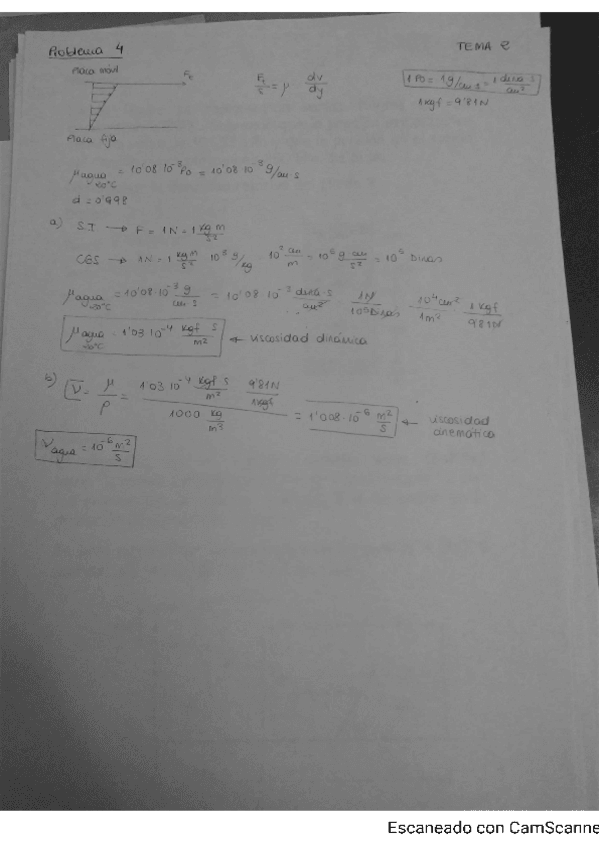 Problema 4
TEMA 2
Placa móvil
Placa fija
F_t
F_t/S = μ dv/dy
1 Po = 1 g/cm s = 1 dina s/cm²
1 kgf = 9'81 N
μ agua 20°C = 10'08·10⁻³ Po = 10'08·10⁻³ g/cm s
d = 0'998
a) S.I → F = 1N = 1 kg m/s²
CGS → 1N = 1 kg m/s² 10³ g/kg 10² cm/m = 10⁵ g cm/s² = 10⁵ Dinas
μ agua 20°C = 10'08·10⁻³ g/cm s = 10'08·10⁻³ dina·s/cm² 1N/10⁵ Dinas 10⁴ cm²/1m² 1 kgf/9'81N
μ agua 20°C = 1'03·10⁻⁴ kgf s/m² ← viscosidad dinámica
b) ν = μ/ρ = 1'03·10⁻⁴ kgf·s/m² 9'81N/1kgf / 1000 kg/m³ = 1'008·10⁻⁶ m²/s ← viscosidad cinemática
ν agua = 10⁻⁶ m²/s
Escaneado con CamScanne